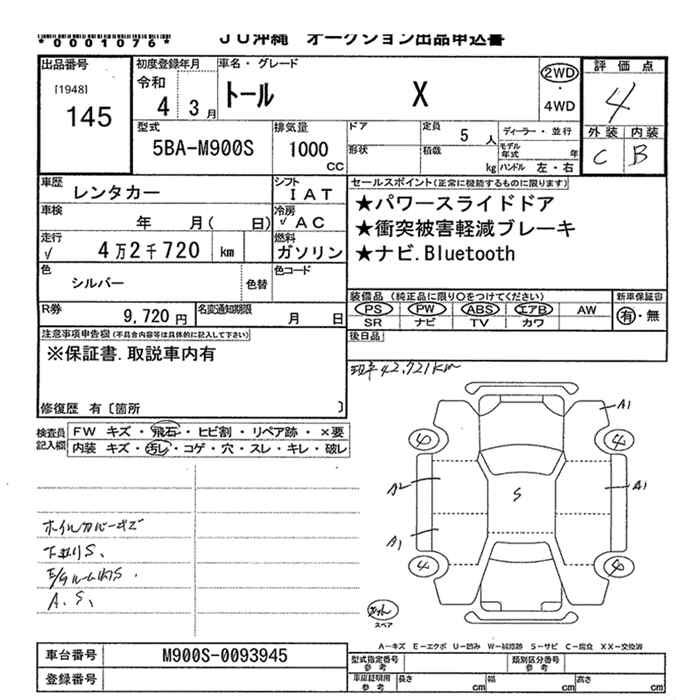 *0001076*
JU沖縄 オークション出品申込書
出品番号
[1948]
145
初度登録年月
令和
4 3月
車名・グレード
トール X
2WD
・
4WD
評価点
4
外装 内装
C B
型式
5BA-M900S
排気量
1000
CC
ドア
形状
定員 5 人
積載 kg
ディーラー・並行
モデル年式 年
ハンドル 左・右
車歴 レンタカー
シフト IAT
車検 年 月( 日)
冷房 √ AC
走行 √ 4万2千720 km
燃料 ガソリン
色 シルバー 色替
色コード
R券 9,720円
名変通知期限 月 日
セールスポイント(正常に機能するものに限ります)
★パワースライドドア
★衝突被害軽減ブレーキ
★ナビ.Bluetooth
装備品 (純正品に限り○をつけてください)
PS PW ABS エアB AW
SR ナビ TV カワ
新車保証書
有・無
後日品
注意事項申告欄(不具合内容等は具体的に記入して下さい)
※保証書.取説車内有
修復歴 有〔箇所 〕
42,721km
検査員記入欄
FW キズ・飛石・ヒビ割・リペア跡・×要
内装 キズ・汚レ・コゲ・穴・スレ・キレ・破レ
A1
4 4
A2 S A1
A1
4 4
ホイルカバーキズ
下廻りS、
A.S、
スペア
A−キズ E−エクボ U−凹み W−補修跡 S−サビ C−腐食 XX−交換済
車台番号 M900S-0093945
登録番号
型式指定番号 参考
類別区分番号 参考
車庫証明用 参考 長さ cm 幅 cm 高さ cm